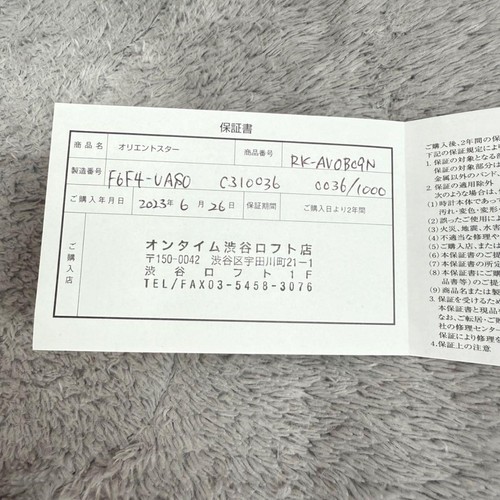 保証書
商品名 オリエントスター 商品番号 RK-AV0B09N
製造番号 F6F4-UAS0 C310036 0036/1000
ご購入年月日 2023年 6月 26日 保証期間 ご購入日より2年間
ご購入店
オンタイム渋谷ロフト店
〒150-0042 渋谷区宇田川町21-1
渋谷ロフト1F
TEL/FAX03-5458-3076
ご購入後、2年間の保
下記の保証規定により
1. 保証の対象となる部
保証の対象部分は
金属以外のバンド、
2. 保証の適用除外
次のような場合は、
(1)時計本体であって
汚れ・変色・変形
(2)誤ったご使用によ
(3)火災、地震、水害
(4)不適当な修理や
(5)ご購入店、または
(6)本保証書のご提
(7)本保証書の所定
(8)本保証書にご購
品書等)のご提
(9)商品名または製
3. 保証を受けるため
本保証書と現品を
なお、ご転居・ご贈
社の修理センター
保証により修理を
4. 保証上の注意